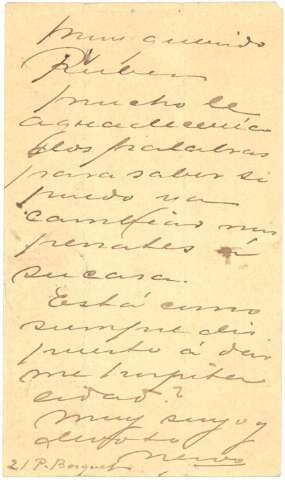 muy querido
Rubén
mucho le
agradecería
dos palabras
para saber si
puedo ya
cambiar mis
penates á
su casa.
Está como
siempre dis
puesto á dar
me hospita
lidad?
Muy suyo y
devoto
Nervo
21 P. Bosquet